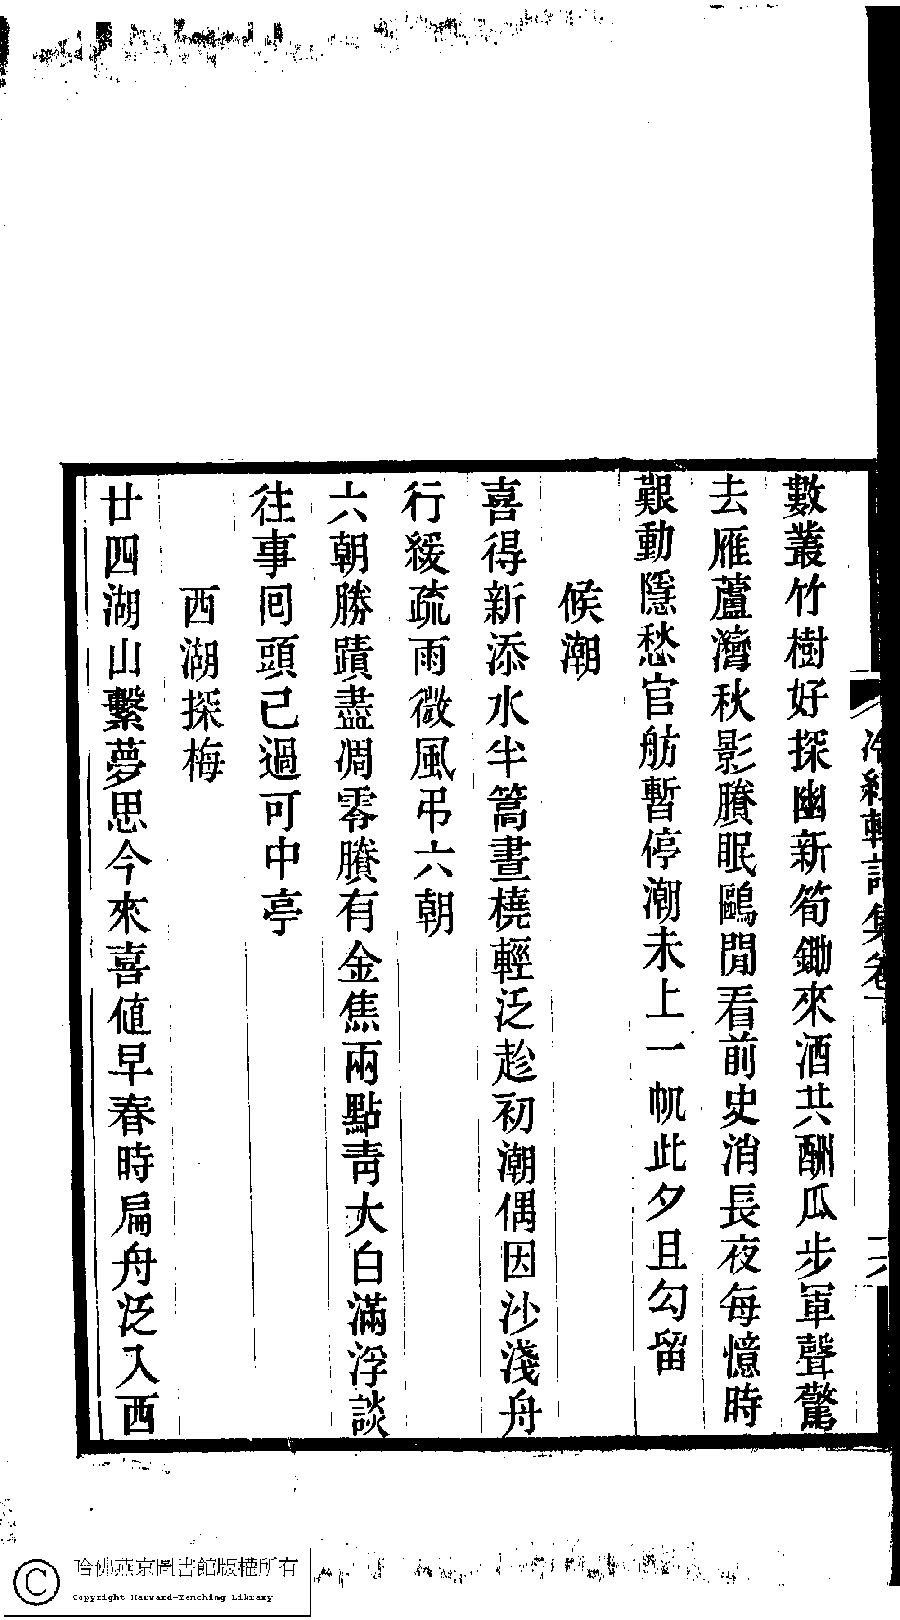 數叢竹樹好探幽新筍鋤來酒共酬瓜步軍聲驚
去雁蘆灣秋影賸眠鷗閒看前史消長夜每憶時
艱動隱愁官舫暫停潮未上一帆此夕且勾留
候潮
喜得新添水半篙晝橈輕泛趁初潮偶因沙淺舟
行緩疏雨微風弔六朝
六朝勝蹟盡凋零賸有金焦兩點靑大白滿浮談
往事囘頭已過可中亭
西湖探梅
廿四湖山繫夢思今來喜値早春時扁舟泛入西
詩集卷下
六
哈佛燕京圖書館版權所有
Copyright Harvard-Yenching Library